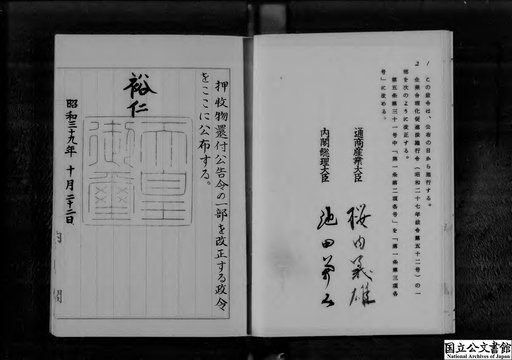 1 この政令は、公布の日から施行する。
2 企業合理化促進法施行令(昭和二十七年政令第五十二号)の一
部を次のように改正する。
第五条第三十一号中「第一条第二項各号」を「第一条第三項各
号」に改める。
通商産業大臣 桜内義雄
内閣総理大臣 池田勇人
押収物還付公告令の一部を改正する政令
をここに公布する。
裕仁
天皇
御璽
昭和三十九年十月二十二日
内閣
国立公文書館
National Archives of Japan